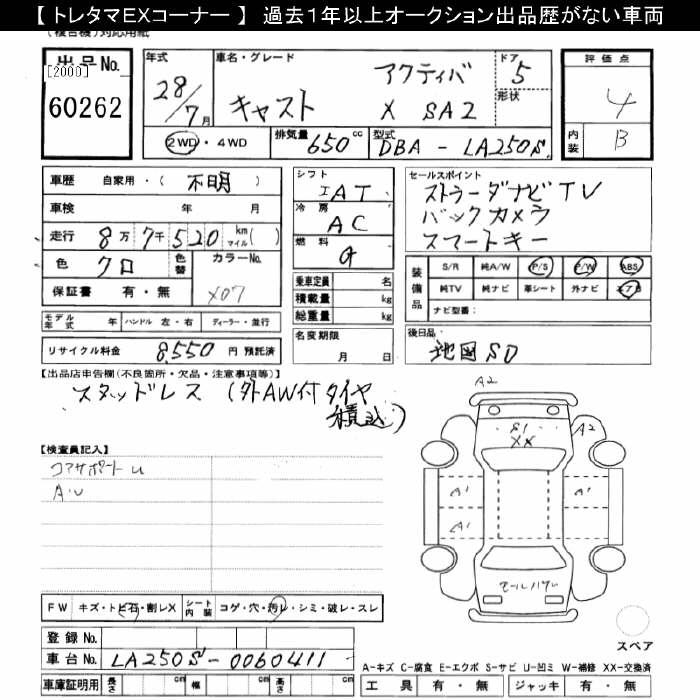 【 トレタマEXコーナー 】 過去１年以上オークション出品歴がない車両
(複合機)対応用紙
出品No.
[2000]
60262
年式
28/7月
車名・グレード
キャスト アクティバ
X SA2
ドア
5
形状
2WD・4WD
排気量 650cc
型式 DBA - LA250S
評価点
4
内装 B
車歴 自家用・( 不明 )
車検 年 月
走行 8万 7千520 km マイル( )
色 クロ
色替
カラーNo.
X07
保証書 有・無
モデル年式 年 ハンドル 左・右 ディーラー・並行
リサイクル料金 8,550 円 預託済
シフト
IAT
冷房
AC
燃料
G
乗車定員 名
積載量 kg
総重量 kg
名変期限
月 日
セールスポイント
ストラーダナビTV
バックカメラ
スマートキー
装備品
S/R 純A/W P/S P/W ABS
純TV 純ナビ 革シート 外ナビ エアB
ナビ型番:
後日品:
地図SD
【出品店申告欄(不良箇所・欠品・注意事項等)】
スタッドレス (外AW付タイヤ
積込)
【検査員記入】
コアサポートU
A・U
A2
S1
XX
A2
A1
A1
A1
モールハゲ
スペア
FW キズ・トビ石・割レX シート内装 コゲ・穴・汚レ・シミ・破レ・スレ
登録 No.
車台 No. LA250S-0060411
車庫証明用 長さ cm 幅 cm 高さ cm
A-キズ C-腐食 E-エクボ S-サビ U-凹ミ W-補修 XX-交換済
工具 有・無 ジャッキ 有・無